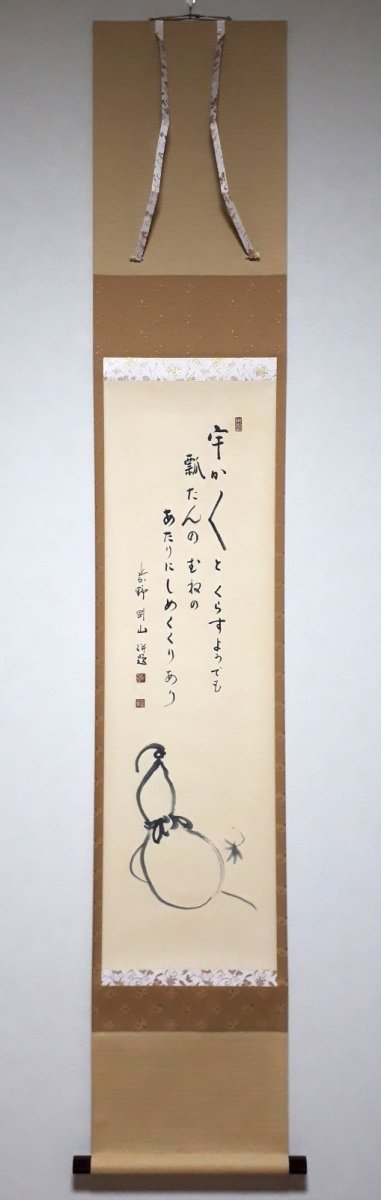 宇か〱とくらすようでも
瓢たんのむねの
あたりにしめくくりあり